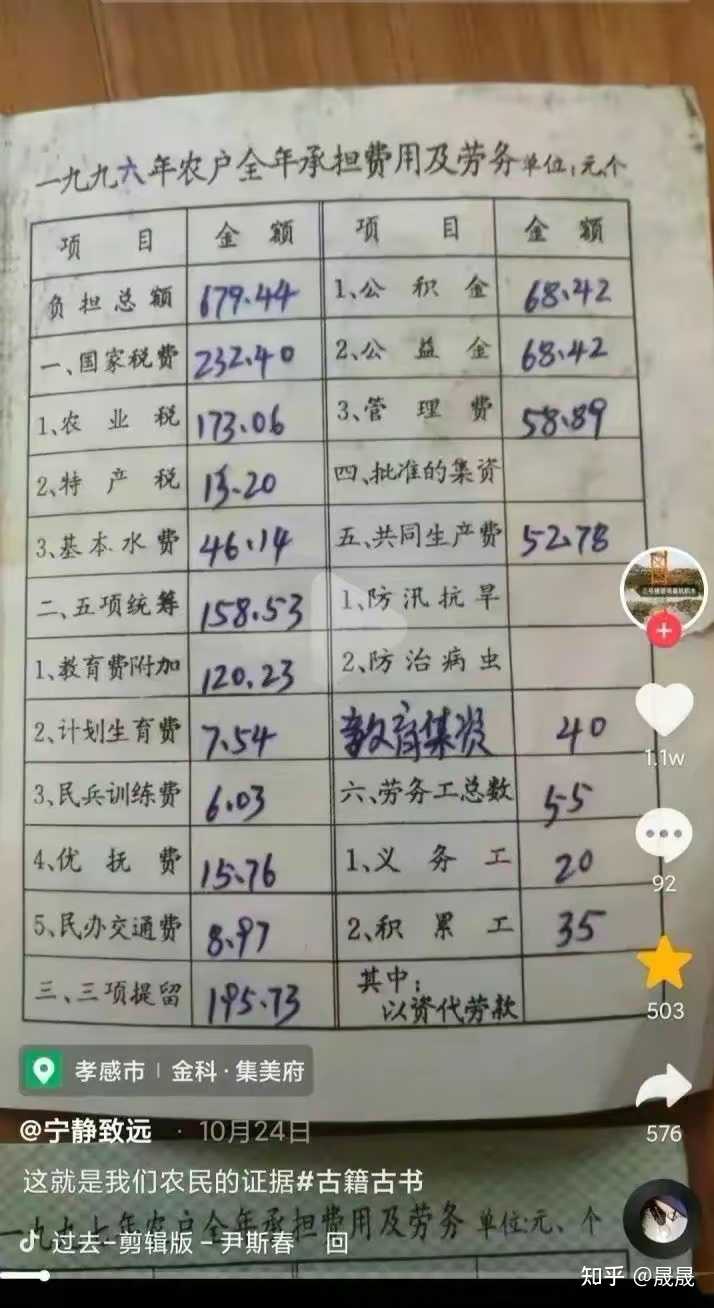 一九九六年农户全年承担费用及劳务 单位:元、个
项 目 金 额 项 目 金 额
负担总额 679.44 1、公积金 68.42
一、国家税费 232.40 2、公益金 68.42
1、农业税 173.06 3、管理费 58.89
2、特产税 13.20 四、批准的集资
3、基本水费 46.14 五、共同生产费 52.78
二、五项统筹 158.53 1、防汛抗旱
1、教育费附加 120.23 2、防治病虫
2、计划生育费 7.54 教育集资 40
3、民兵训练费 6.03 六、劳务工总数 55
4、优抚费 15.76 1、义务工 20
5、民办交通费 8.97 2、积累工 35
三、三项提留 195.73 其中:
以资代劳款
1.1w
92
503
576
孝感市 | 金科·集美府
@宁静致远 · 10月24日
这就是我们农民的证据#古籍古书
一九九七年农户全年承担费用及劳务 单位:元、个
过去-剪辑版 - 尹斯春 回
知乎 @晟晟